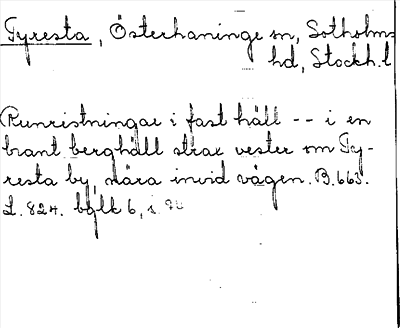 Tyresta, Österhaninge sn, Sotholms
hd, Stockh. l
Runristningar i fast häll -- i en
brant berghäll strax vester om Ty-
resta by, nära invid vägen. B. 663.
L. 824. bglk 6, s.